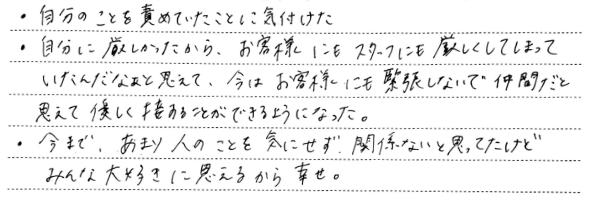 ・自分のことを責めていたことに気付けた
・自分に厳しかったから、お客様にもスタッフにも厳しくしてしまって
いたんだなぁと思えて、今はお客様にも緊張しないで仲間だと
思えて優しく接することができるようになった。
・今まで、あまり人のことを気にせず、関係ないと思ってたけど
みんな大好きに思えるから幸せ。